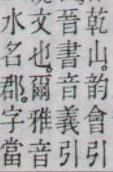 乾山。韵會引
晉書音義引
文也。爾雅音
水名郡。字當